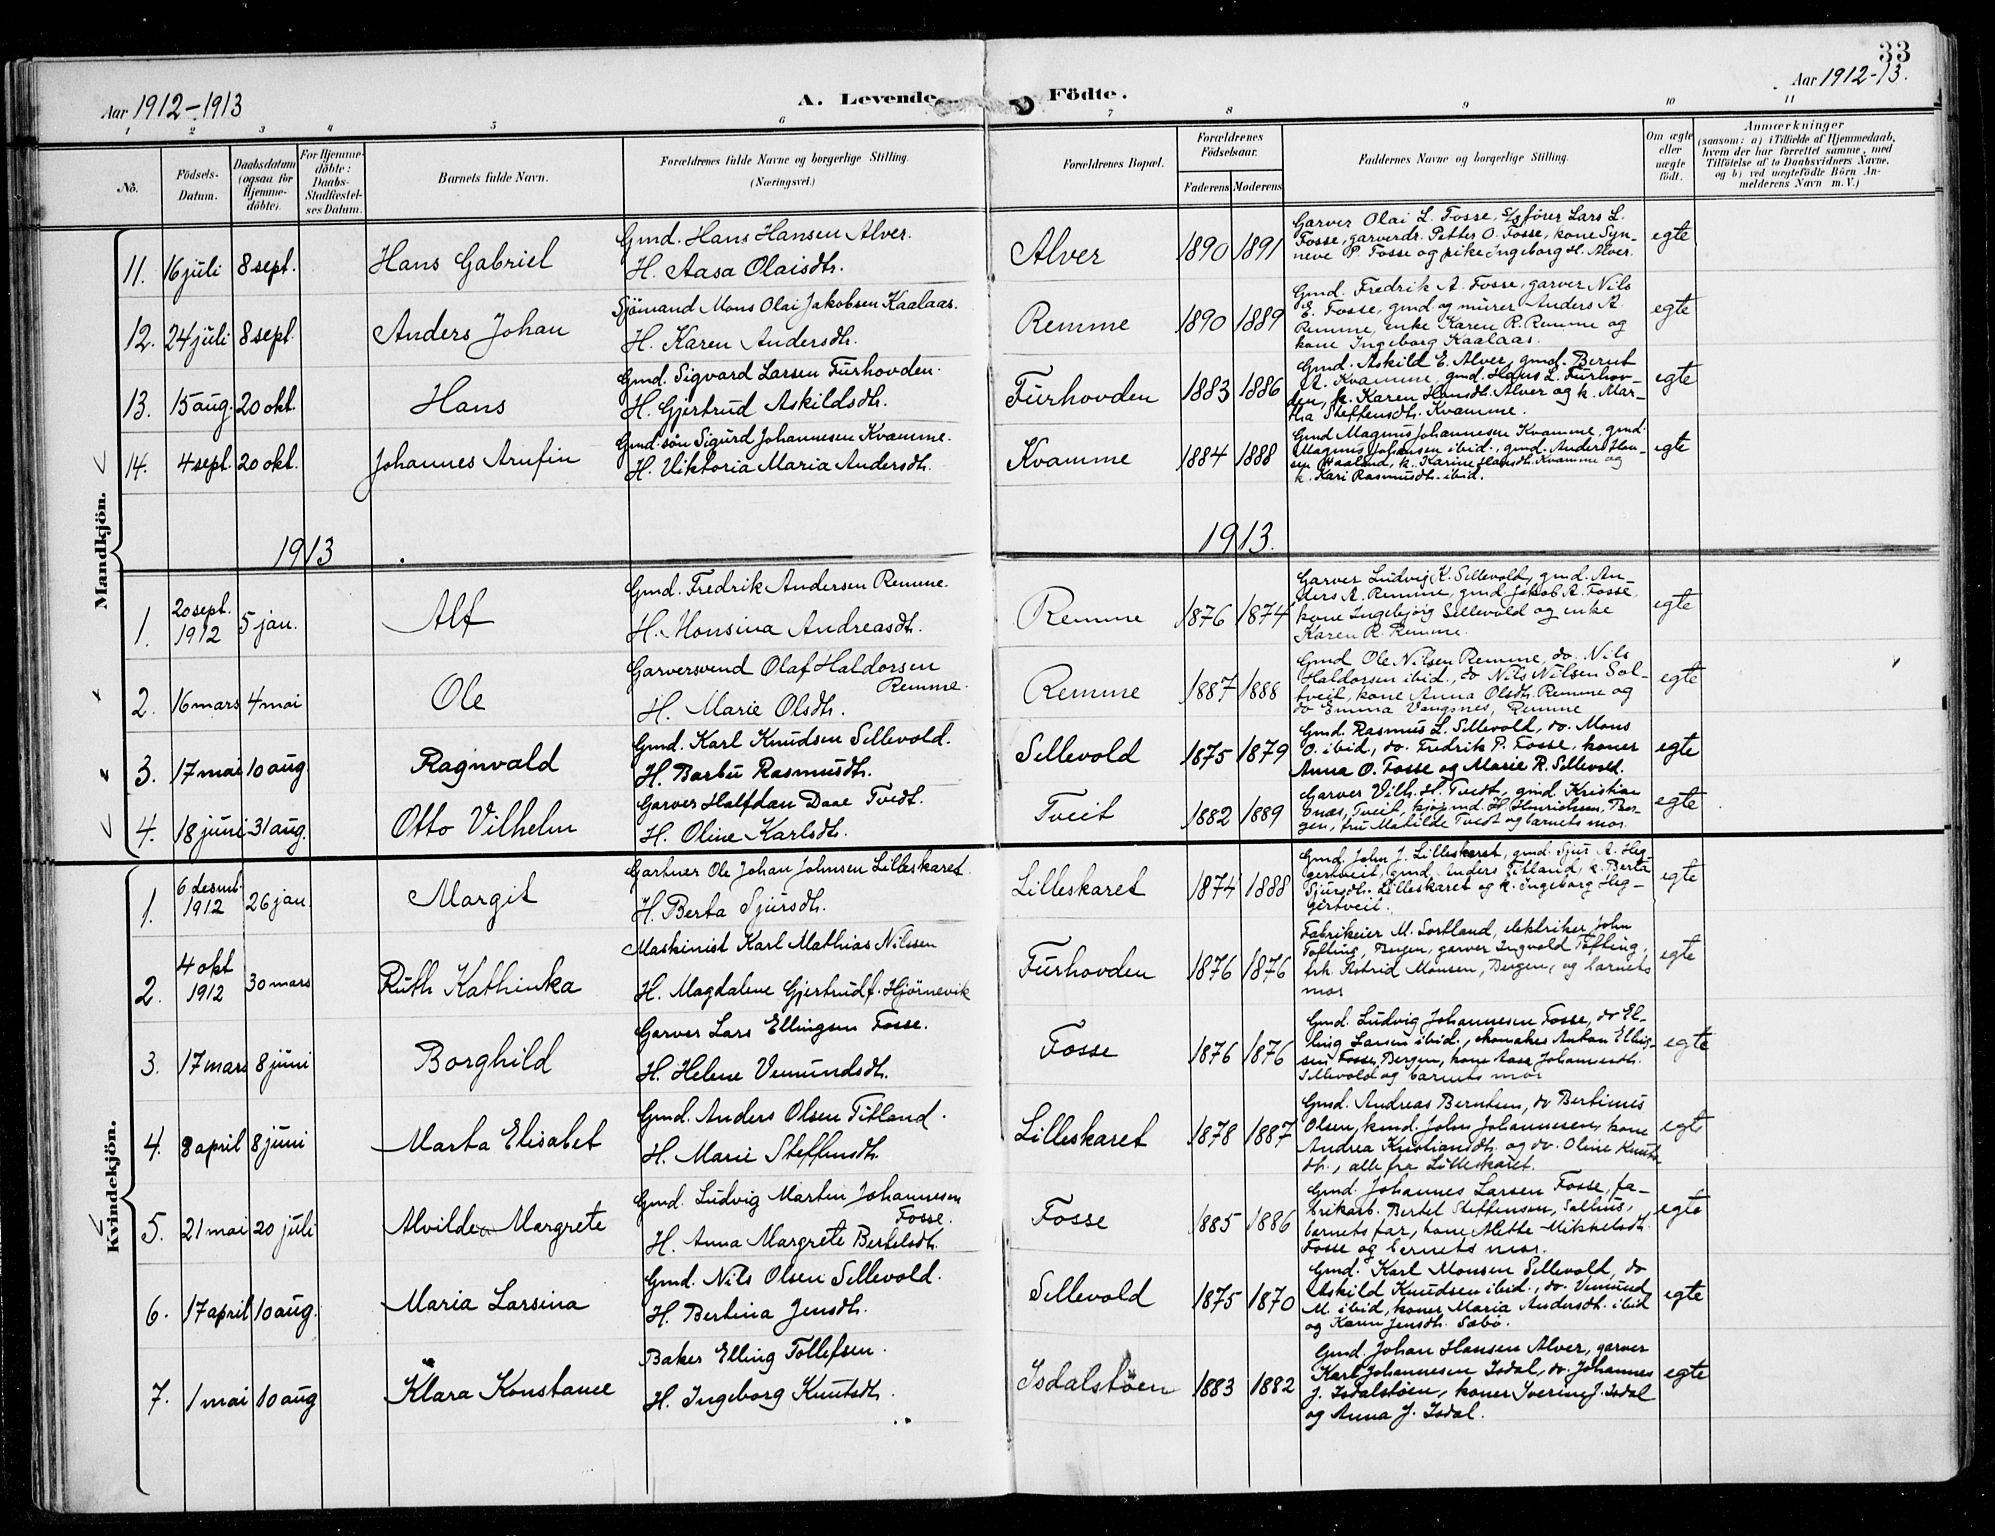 33
Aar 1912-1913
A. Levende
Födte.
Aar 1912-13.
1 2 3 4 5 6 7 8 9 10 11
No.
Födsels-Datum.
Daabsdatum (ogsaa for Hjemmedöbte).
For Hjemmedöbte: Daabs-Stadfæstelses Datum.
Barnets fulde Navn.
Forældrenes fulde Navne og borgerlige Stilling.
(Næringsvei.)
Forældrenes Bopæl.
Forældrenes Födselsaar.
Faderens Moderens
Faddernes Navne og borgerlige Stilling.
Om ægte eller uægte födt.
Anmærkninger
(saasom: a) i Tilfælde af Hjemmedaab, hvem der har forrettet samme, med Tilföielse af to Daabsvidners Navne, og b) ved uægtefödte Börn Anmelderens Navn m. V.)
Mandkjön.
11. 16 juli 8 sept. Hans Gabriel
Gmd. Hans Hansen Alver.
H. Aasa Olaisdtr.
Alver 1890 1891
Garver Olai L. Fosse, fører Lars L.
Fosse, garverdr. Petter O. Fosse, kone Syn-
neve P. Fosse og pike Ingeborg H. Alver.
egte
12. 24 juli 8 sept. Anders Johan
Sjömand Mons Olai Jakobsen Kaalaas.
H. Karen Andersdtr.
Remme 1890 1889
Gmd. Fredrik A. Fosse, garver Nils
E. Fosse, gmd og murer Anders A.
Remme, enke Karen R. Remme og
kone Ingeborg Kaalaas.
egte
13. 15 aug. 20 okt. Hans
Gmd. Sigvard Larsen Fürhovden.
H. Gjertrud Askildsdtr.
Fürhovden 1883 1886
Gmd. Askild E. Alver, gmd. Bernt
A. Kvamme, gmd. Hans L. Fürhov-
den, k. Karen Hansdtr. Alver og k. Mar-
tha Steffensdtr. Kvamme.
egte
14. 4 sept. 20 okt. Johannes Arnfin
Gmd.søn Sigurd Johannesen Kvamme.
H. Viktoria Maria Andersdtr.
Kvamme 1884 1888
Gmd Magnus Johannesen Kvamme, gmd.
Magnus Johansen ibid., gmd. Anders Han-
sen Haaland, k. Karine Hansdtr. Kvamme og
k. Kari Rasmusdtr. ibid.
egte
1913
1913.
1. 20 sept. 1912 5 jan. Alf
Gmd. Fredrik Andersen Remme.
H. Monsina Andreasdtr.
Remme 1876 1874
Garver Ludvig K. Sellevold, gmd. An-
ders A. Remme, gmd Jakob A. Fosse,
kone Ingebjørg Sellevold og enke
Karen R. Remme.
egte
2. 16 mars 4 mai Ole
Garversvend Olaf Haldorsen
Remme.
H. Marie Olsdtr.
Remme 1887 1888
Gmd Ole Nilsen Remme, do. Nils
Haldorsen ibid., do Nils Nilsen Sol-
tveit, kone Anna Olsdtr. Remme og
do Emma Vangsnes, Remme
egte
3. 17 mai 10 aug Ragnvald
Gmd. Karl Knudsen Sellevold.
H. Barbu Rasmusdtr.
Sellevold 1875 1879
Gmd. Rasmus L. Sellevold, do. Mons
O. ibid., do. Fredrik P. Fosse, koner
Anna O. Fosse og Marie R. Sellevold.
egte
4. 18 juni 31 aug. Otto Vilhelm
Garver Halfdan Daae Tvedt.
H. Oline Karlsdtr.
Tveit 1882 1889
Garver Vilh. H. Tvedt, gmd. Kristian
Tveit, kjøpmd. H. Henrichsen, Ber-
gen, fru Matilde Tvedt og barnets mor.
egte
Kvindekjön.
1. 6 desmb. 1912 26 jan. Margit
Gartner Ole Johan Johnsen Lilleskaret.
H. Berta Sjursdtr.
Lilleskaret 1874 1888
Gmd. John J. Lilleskaret, gmd. Sjur A. Heg-
gertveit, gmd. Anders Titland, k. Berta
Sjursdtr. Lilleskaret og k. Ingeborg Heg-
gertveit.
egte
2. 4 okt 1912 30 mars Ruth Kathinka
Maskinist Karl Mathias Nilssen
H. Magdalene Gjertrud f. Hjørnevik
Fürhovden 1876 1876
Fabrikeier M. Sortland, elektriker John
Tofting, Bergen, garver Ingvald Tofting,
frk Astrid Monsen, Bergen, og barnets
mor
egte
3. 17 mars 8 juni Borghild
Garver Lars Ellingsen Fosse.
H. Helene Vemundsdtr.
Fosse 1876 1876
Gmd. Ludvig Johannesen Fosse, do El-
ling Larsen ibid., skomaker Anton Elling-
sen Fosse, Bergen, kone Aase Johannesdtr.
Sellevold og barnets mor
egte
4. 8 april 8 juni Marta Elisabet
Gmd. Anders Olsen Titland.
H. Marie Steffensdtr.
Lilleskaret 1878 1887
Gmd. Andreas Berntsen, do Bertinus
Olsen, kmd. John Johannesen, kone
Andrea Kristiansdtr. og do. Oline Knuts-
dtr., alle fra Lilleskaret.
egte
5. 21 mai 20 juli Alvilde Margrete
Gmd. Ludvig Martin Johannesen
Fosse.
H. Anna Margrete Bertelsdtr.
Fosse 1885 1886
Gmd. Johannes Larsen Fosse, fa-
brikarb. Bertel Steffensen, Salhus,
barnets far, kone Mette Mikkelsdtr.
Fosse og barnets mor.
egte
6. 17 april 10 aug. Maria Larsina
Gmd. Nils Olsen Sellevold.
H. Bertina Jensdtr.
Sellevold 1875 1870
Gmd. Karl Monsen Sellevold, do
Askild Knudsen ibid., do. Vemund
M. ibid, koner Maria Andersdtr. ibid
og Karen Jensdtr. Sæbø.
egte
7. 1 mai 10 aug Klara Konstance
Baker Elling Tollefsen.
H. Ingeborg Knutsdtr.
Isdalstøen 1883 1882
Gmd. Johan Hansen Alver, garver
Karl Johannesen Isdal, do. Johannes
J. Isdalstøen, koner Iverine J. Isdal
og Anna J. Isdal.
egte